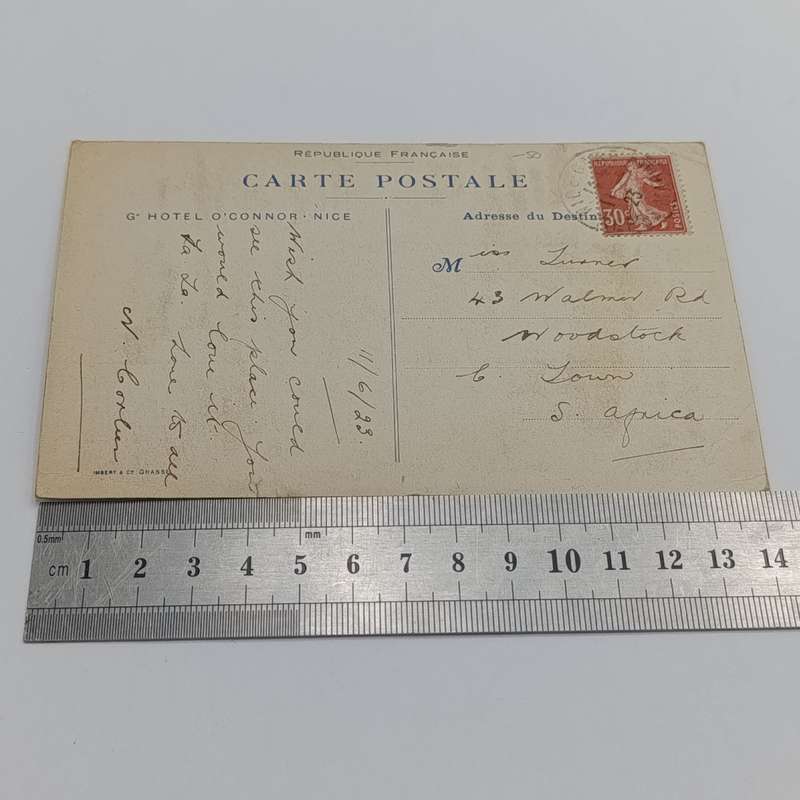 RÉPUBLIQUE FRANÇAISE
-50
CARTE POSTALE
Gᵈ HOTEL O'CONNOR · NICE
Adresse du Destin
RÉPUBLIQUE FRANÇAISE
30c
POSTES
23
Miss Turner
43 Walmer Rd
Woodstock
C. Town
S. Africa
11/6/23.
Wish you could
see this place. You
would love it.
La La. Love to all
N.
IMBERT & Cᴵᴱ GRASSE
0.5mm
mm
cm 1 2 3 4 5 6 7 8 9 10 11 12 13 14